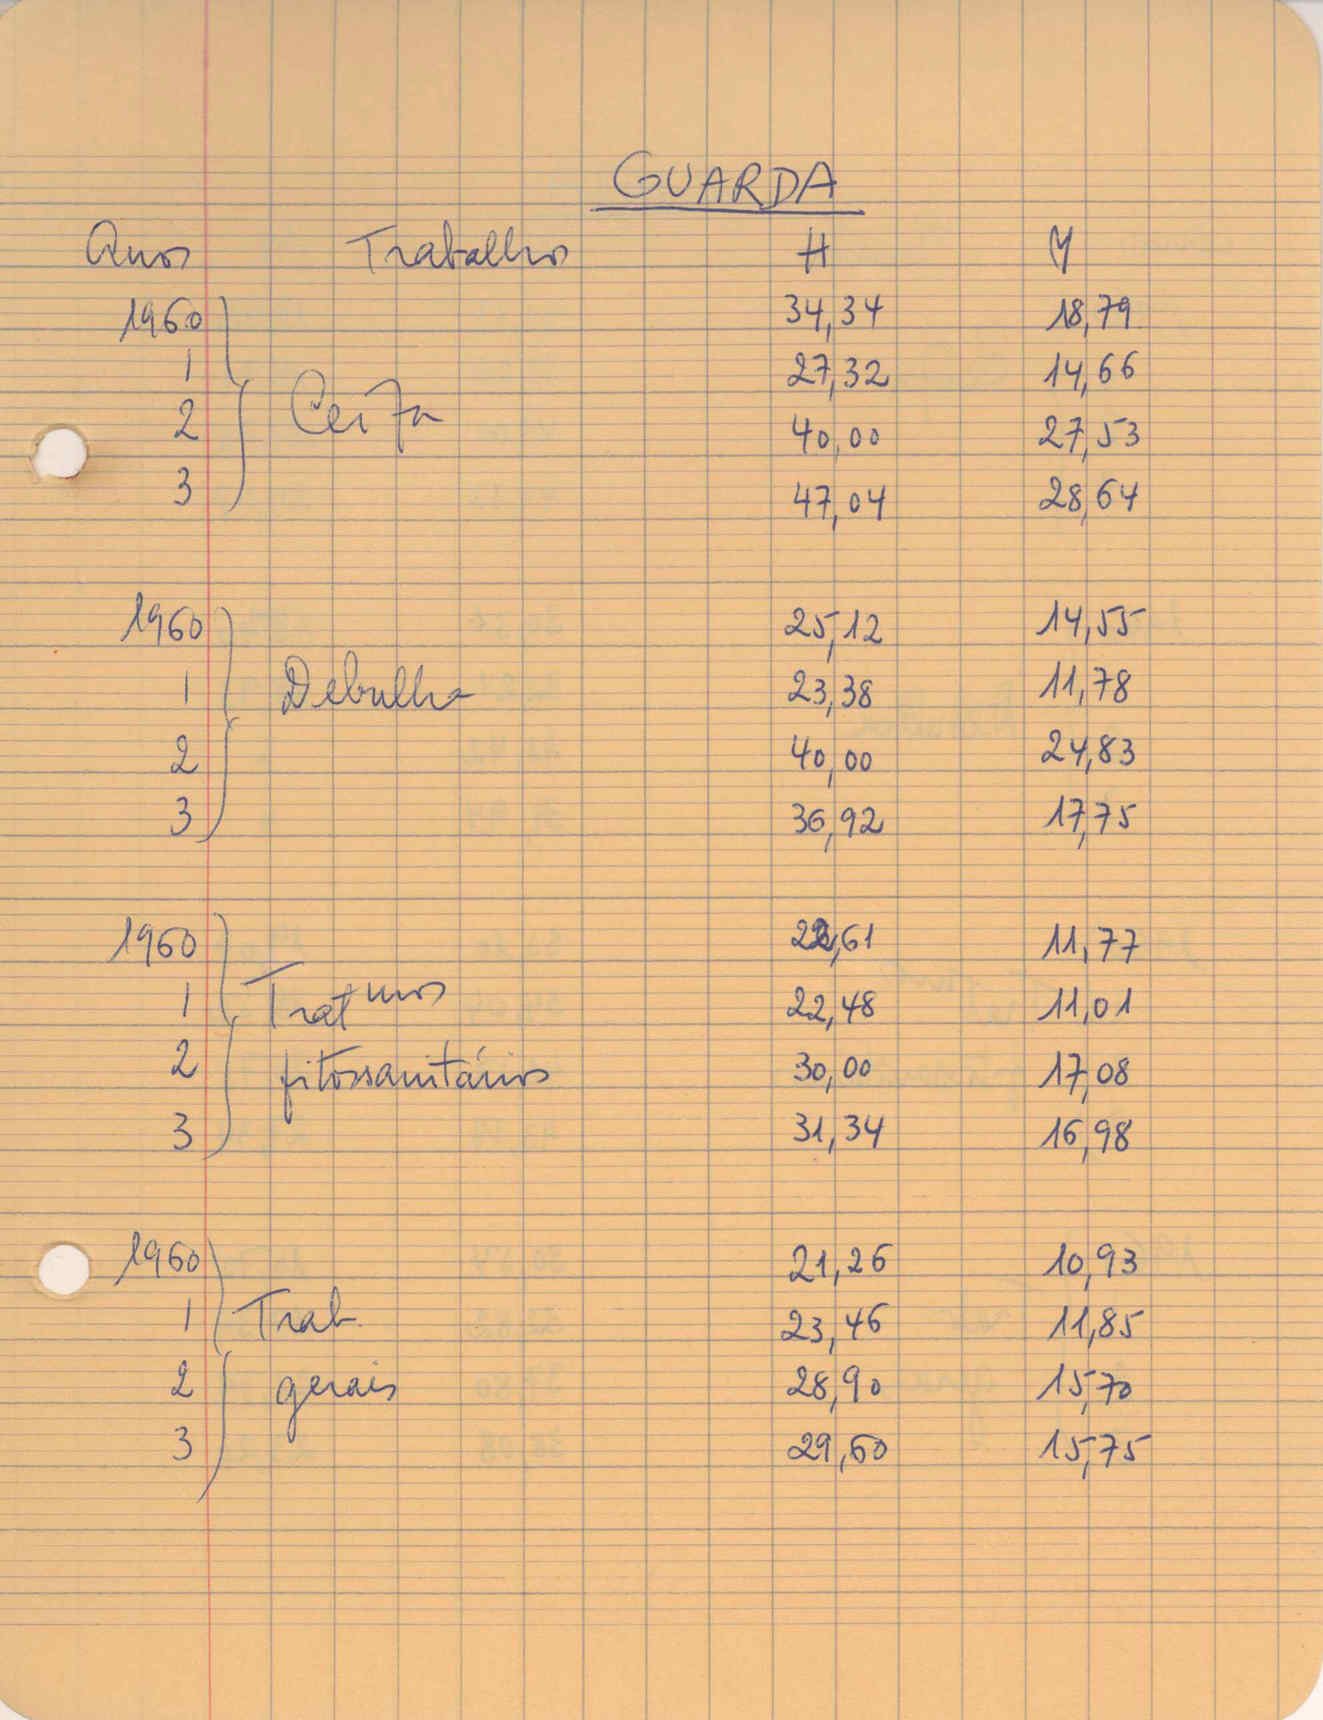 GUARDA
Anos Trabalhos H M
1960 34,34 18,79
1 27,32 14,66
2 Ceifa 40,00 27,53
3 47,04 28,64
1960 25,12 14,55
1 Debulha 23,38 11,78
2 40,00 24,83
3 36,92 17,75
1960 22,61 11,77
1 Trat mos 22,48 11,01
2 fitossanitários 30,00 17,08
3 31,34 16,98
1960 21,26 10,93
1 Trab. 23,46 11,85
2 gerais 28,90 15,70
3 29,60 15,75